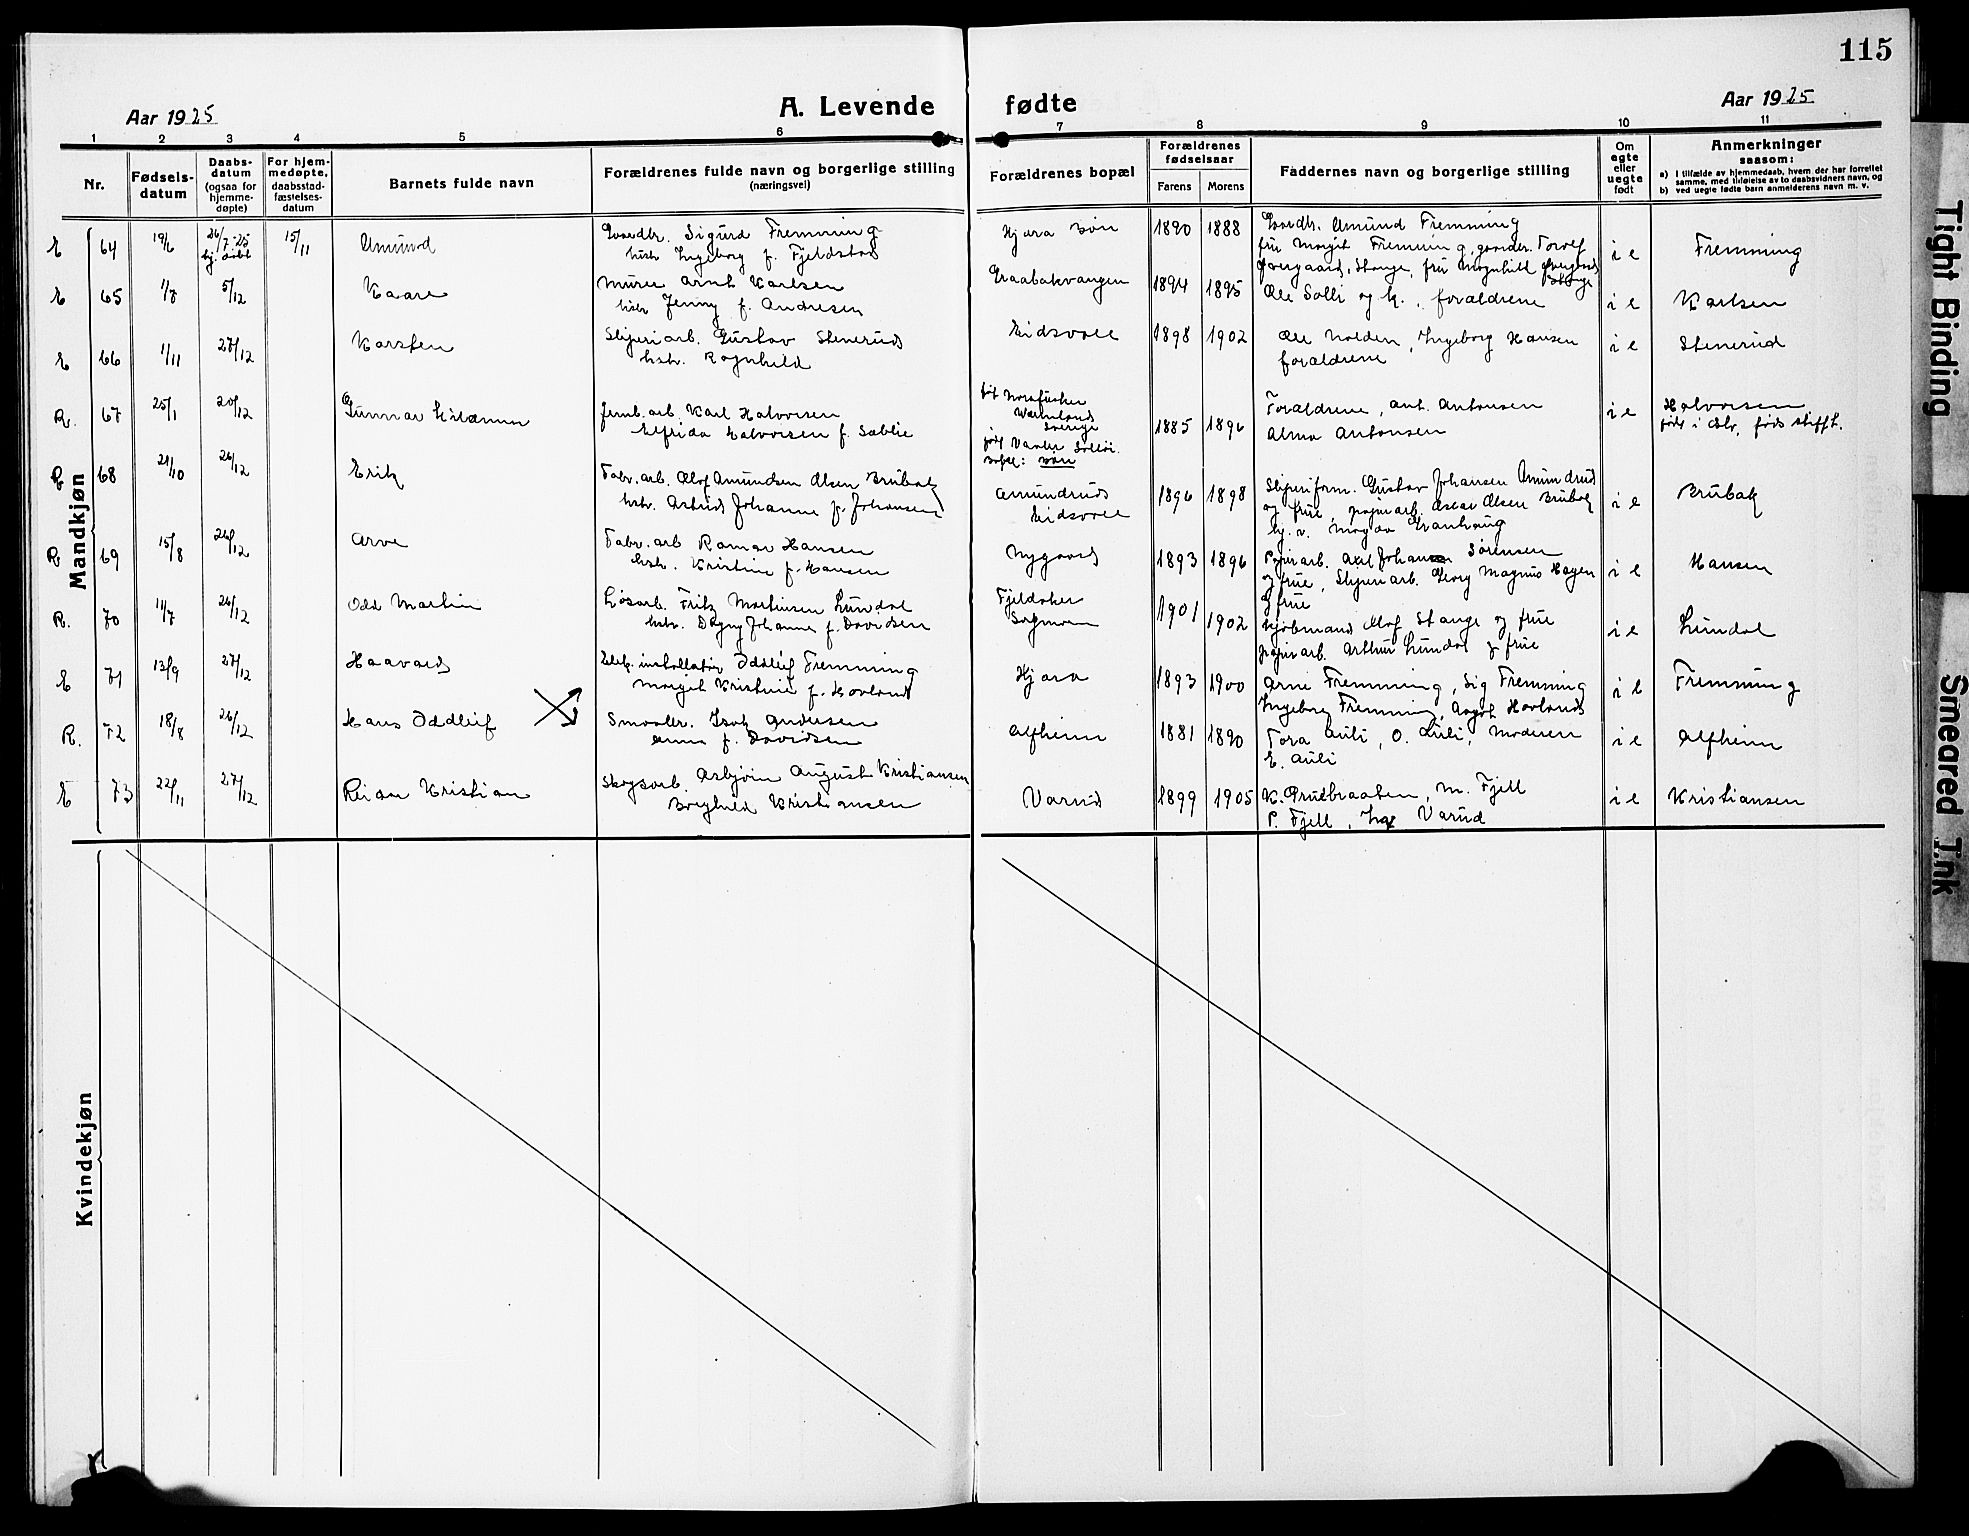 115
Aar 1925
A. Levende fødte
Aar 1925
1 2 3 4 5 6 7 8 9 10 11
Nr.
Fødsels-
datum
Daabs-
datum
(ogsaa for
hjemme-
døpte)
For hjem-
medøpte,
daabsstad-
fæstelses-
datum
Barnets fulde navn
Forældrenes fulde navn og borgerlige stilling
(næringsvei)
Forældrenes bopæl
Forældrenes
fødselsaar
Farens Morens
Faddernes navn og borgerlige stilling
Om
egte
eller
uegte
født
Anmerkninger
saasom:
a) I tilfælde av hjemmedaab, hvem der har forrettet
samme, med tilføielse av to daabsvidners navn, og
b) ved uegte fødte barn anmelderens navn m. v.
Mandkjøn
E 64 19/6 26/7-25 15/11 Amund Gaardbr. Sigurd Fremming Hjera 1890 1888 Gaardbr. Amund Fremming i e Fremming
hj. døbt
hstr. Ingeborg f. Fjeldstad
fru Margit Fremming, gaardbr. Torolf
Overgaard, Stange, fru Magnhild Overgaard
Stange
E 65 1/8 5/12 Kaare Murer Arnt Karlsen Graabakvangen 1894 1895 Ole Solli og h., forældrene i e Karlsen
hstr Jenny f. Andresen
E 66 1/11 27/12 Karsten Sliperiarb. Gustav Stenerud Eidsvoll 1898 1902 Ole Holden, Ingeborg Hansen i e Stenerud
hstr. Ragnhild
forældrene
R. 67 25/1 20/12 Gunnar jernb. arb. Karl Halvorsen 1885 1896 Forældrene, Ant. Antonsen i e Halvorsen
Elfrida Halvorsen f. Sæblie
Værmland
Sverige
Alma Antonsen
R 68 21/10 26/12 Erik Fabr. arb. Olaf Amundsen Olsen Brubak Amundrud 1896 1898 Sliperiform. Gustav Johansen Amundrud i e Brubak
hstr. Astrid Johanne f. Johansen
Eidsvoll
og frue, papirarb. Oscar Olsen Brubak
R 69 15/8 26/12 Arve Fabr. arb Ragnar Hansen Nygaard 1893 1896 Papirarb. Axel Johan Sørensen i e Hansen
hstr. Kristine f. Hansen
og frue, Sliperiarb. Georg Magnus Hagen
og frue
R. 70 11/7 26/12 Odd Martin Løsarb. Fritz Martinsen Lundal Fjeldaker 1901 1902 Kjøbmand Olaf Stange og frue i e Lundal
hstr. Dagny Johanne f. Davidsen
Sagmoen
papirarb. Arthur Lundal og frue
E 71 13/9 27/12 Haavard Elek. installatør Oddleif Fremming Hjera 1893 1900 Arne Fremming, Sig Fremming i e Fremming
Margit Kristine f. Hovland
Ingeborg Fremming, Aagot Hovland
R. 72 18/8 26/12 Hans Oddleif Smaabr. Isak Andersen Alfheim 1881 1890 Tora Auli, O. Auli, Moderen i e Alfheim
Anna f. Davidsen
E. Auli
E 73 22/11 27/12 Reian Kristian Skogsarb. Asbjørn August Kristiansen Varud 1899 1905 K. Prutbraaten, M. Fjell i e Kristiansen
Borghild Kristiansen
P. Fjell, Varud
Kvindekjøn
Tight Binding
Smeared Ink